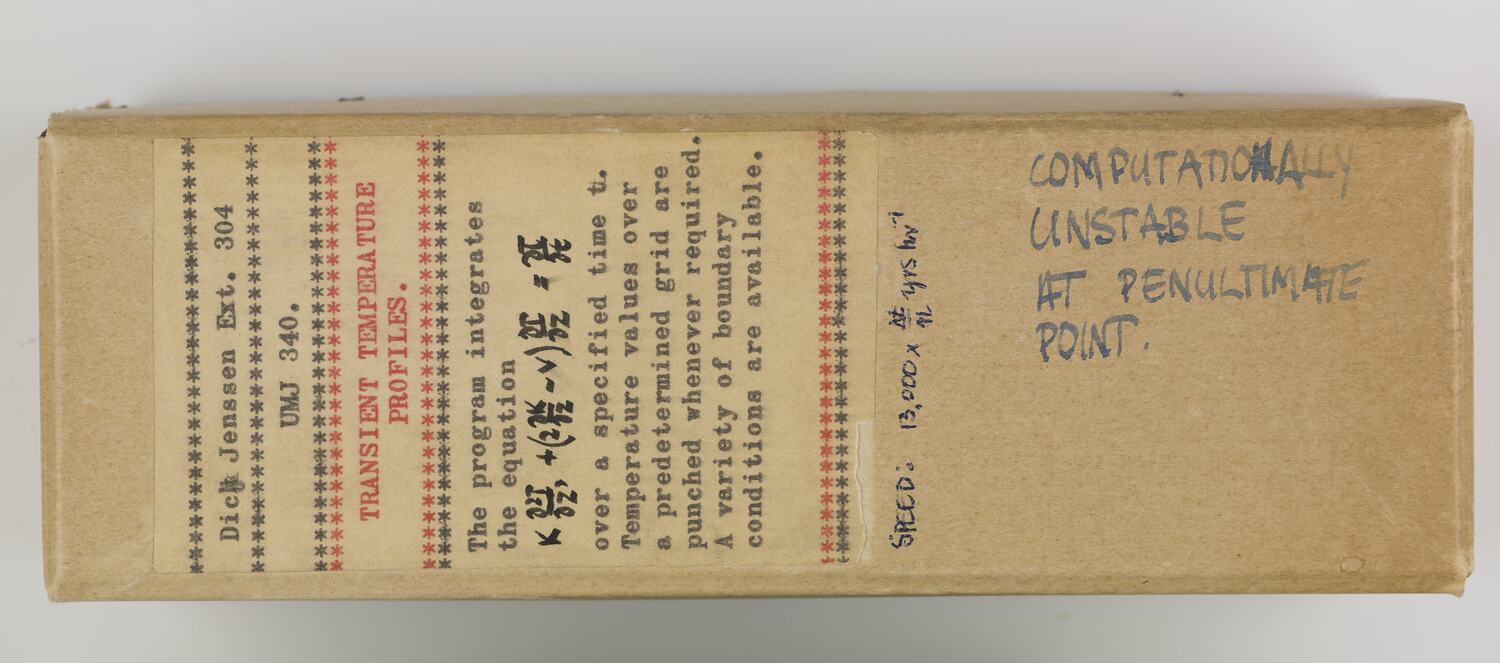 ************************
Dick Jenssen Ext. 304
************************
UMJ 340.
************************
************************
TRANSIENT TEMPERATURE
PROFILES.
************************
************************
The program integrates
the equation
K ∂²T/∂Z² + (2∂K/∂Z - V) ∂T/∂Z = ∂T/∂t
over a specified time t.
Temperature values over
a predetermined grid are
punched whenever required.
A variety of boundary
conditions are available.
************************
************************
SPEED: 13,000 x Δt/n yrs hr⁻¹
COMPUTATIONALLY
UNSTABLE
AT PENULTIMATE
POINT.